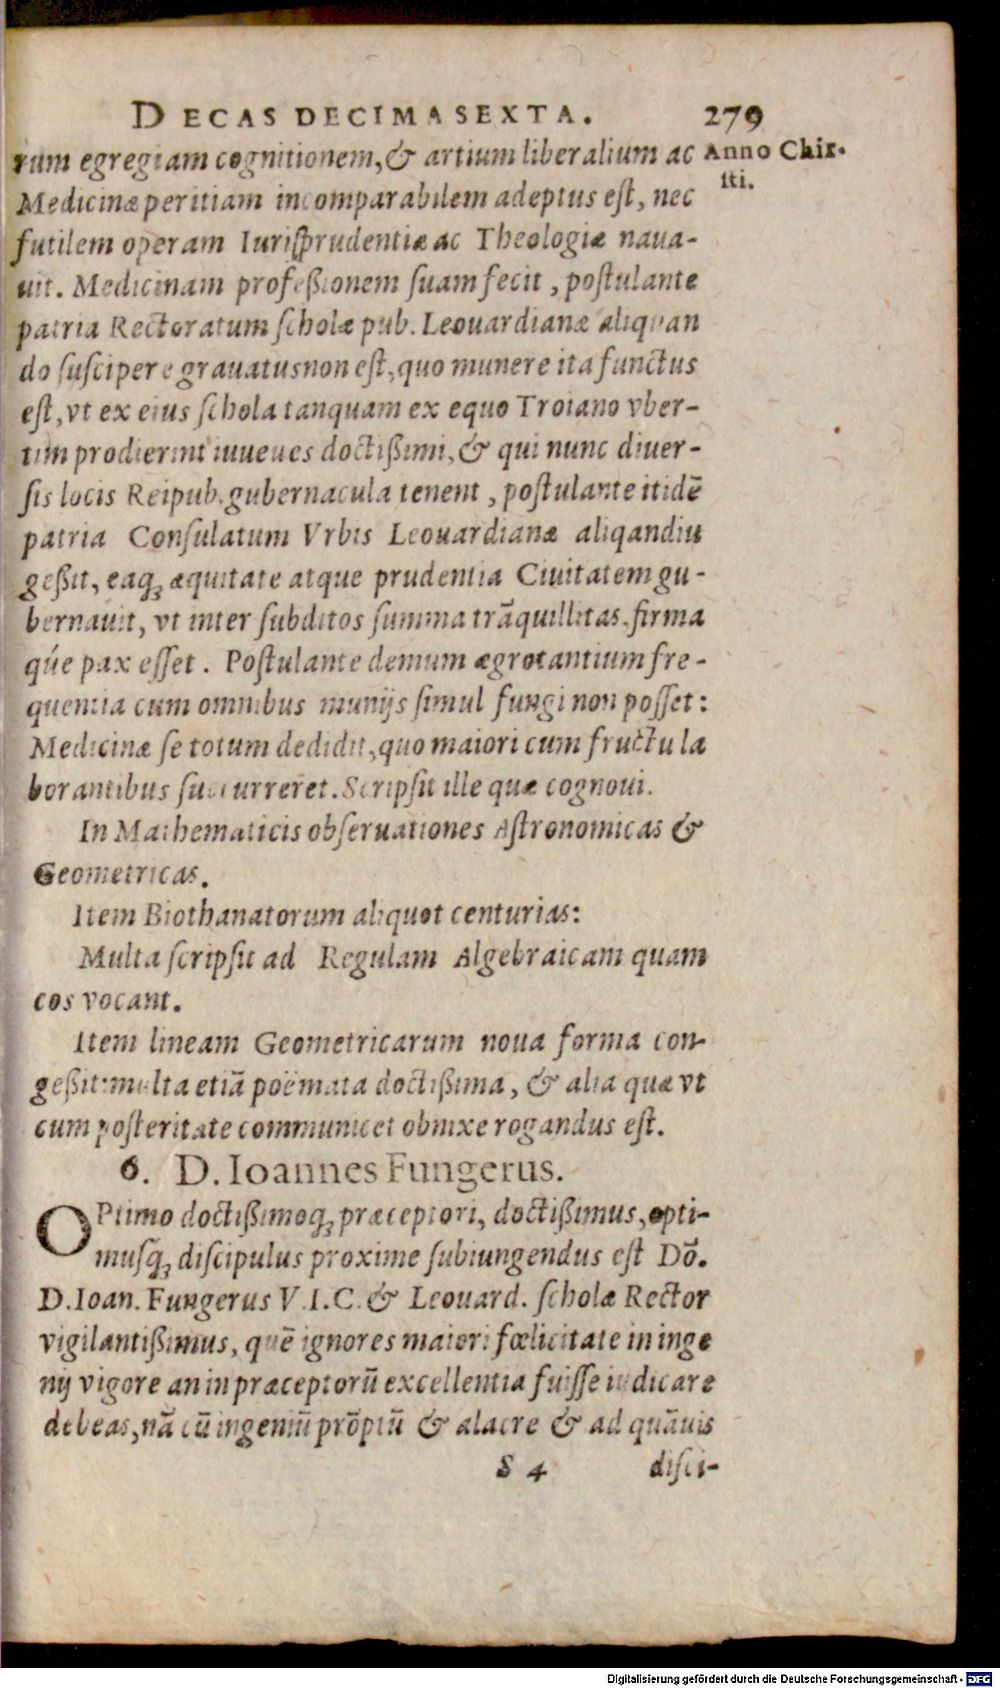 DECAS DECIMA SEXTA. 279
rum egregiam cognitionem, & artium liberalium ac
Anno Chir-
sti.
Medicinæ peritiam incomparabilem adeptus est, nec
futilem operam Iurisprudentiæ ac Theologiæ naua-
uit. Medicinam profeßionem suam fecit, postulante
patria Rectoratum scholæ pub. Leouardianæ aliquan
do suscipere grauatus non est, quo munere ita functus
est, vt ex eius schola tanquam ex equo Troiano vber-
tim prodierint iuueues doctißimi, & qui nunc diuer-
sis locis Reipub. gubernacula tenent, postulante itidē
patria Consulatum Vrbis Leouardianæ aliqandiu
geßit, eaq; æquitate atque prudentia Ciuitatem gu-
bernauit, vt inter subditos summa trāquillitas. firma
qúe pax esset. Postulante demum ægrotantium fre-
quentia cum omnibus munijs simul fungi non posset:
Medicinæ se totum dedidit, quo maiori cum fructu la
borantibus succurreret. Scripsit ille quæ cognoui.
In Mathematicis obseruationes Astronomicas &
Geometricas.
Item Biothanatorum aliquot centurias:
Multa scripsit ad Regulam Algebraicam quam
cos vocant.
Item lineam Geometricarum noua forma con-
geßit: multa etiā poëmata doctißima, & alia quæ vt
cum posteritate communicet obnixe rogandus est.
6. D. Ioannes Fungerus.
OPtimo doctißimoq; præceptori, doctißimus, opti-
musq́; discipulus proxime subiungendus est Dō.
D. Ioan. Fungerus V. I. C. & Leouard. scholæ Rector
vigilantißimus, quē ignores maiori fœlicitate in inge
nij vigore an in præceptorū excellentia fuisse iudicare
debeas, nā cū ingeniū prōptū & alacre & ad quāuis
S 4 disci-
Digitalisierung gefördert durch die Deutsche Forschungsgemeinschaft - DFG